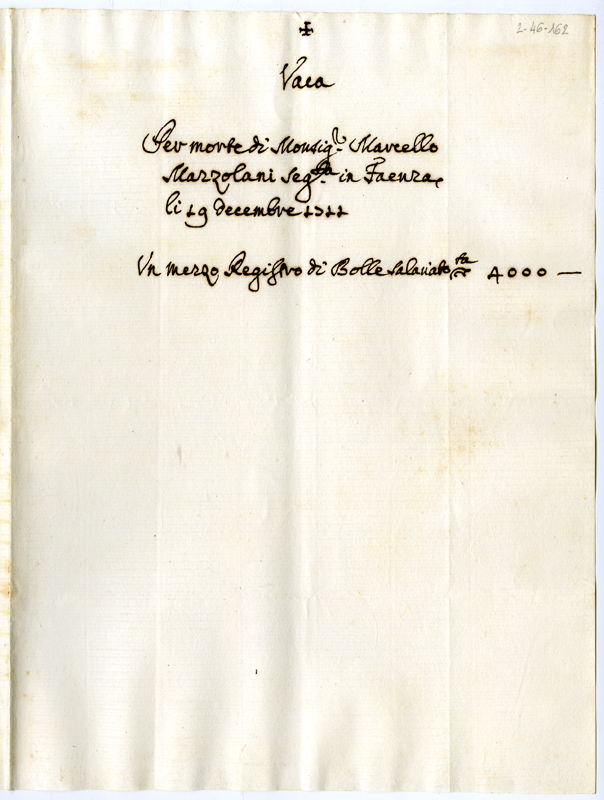 2-46-162
✠
Vaca
Per morte di Monsig.r Marcello
Mazzolani seg.ta in Faenza,
li 19 decembre 1711
Un mezzo Registro di Bolle salariato 4000 —